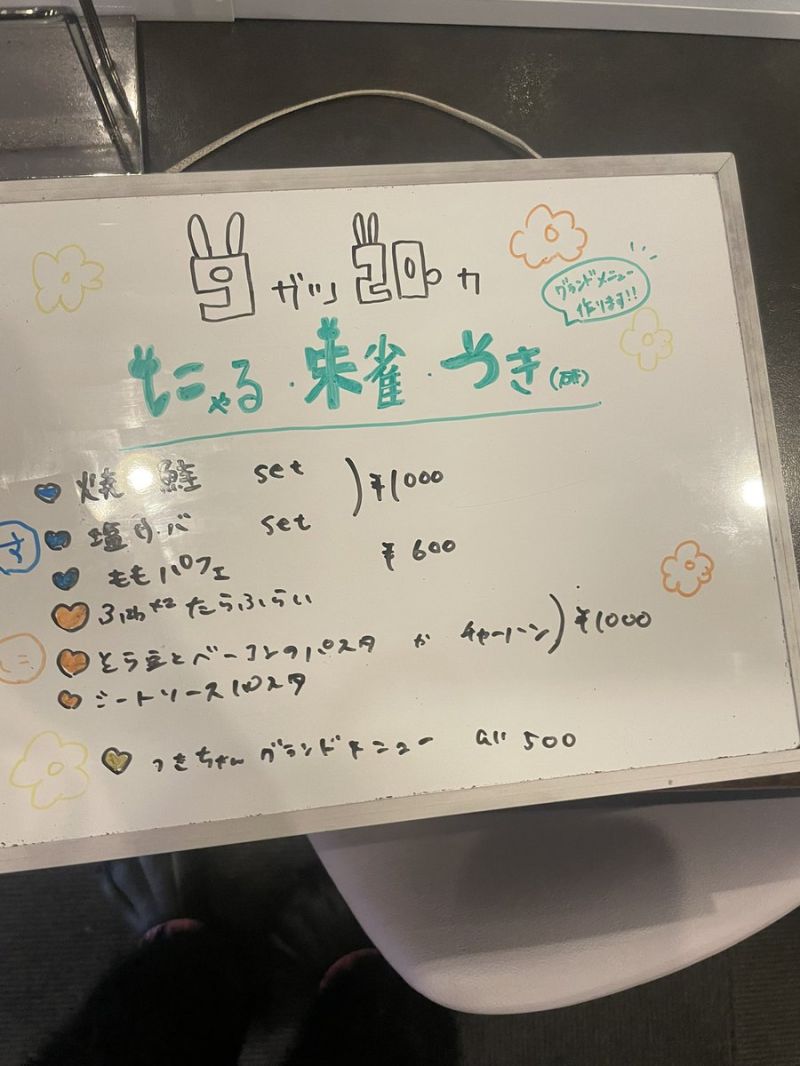 9ガツ20カ
グランドメニュー
作ります!!
もこゃる・朱雀・つき(研)
焼鮭 set
¥1000
す
塩サバ set
ももパフェ ¥600
たらふらい
そら豆とベーコンのパスタ か チャーハン ¥1000
こ
ミートソースパスタ
つきちゃんグランドメニュー all 500